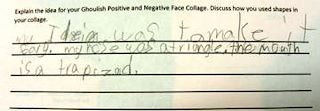 Explain the idea for your Ghoulish Positive and Negative Face Collage. Discuss how you used shapes in
your collage.
my was to make it
my nose was a triangle. the mouth
is a trapizod.